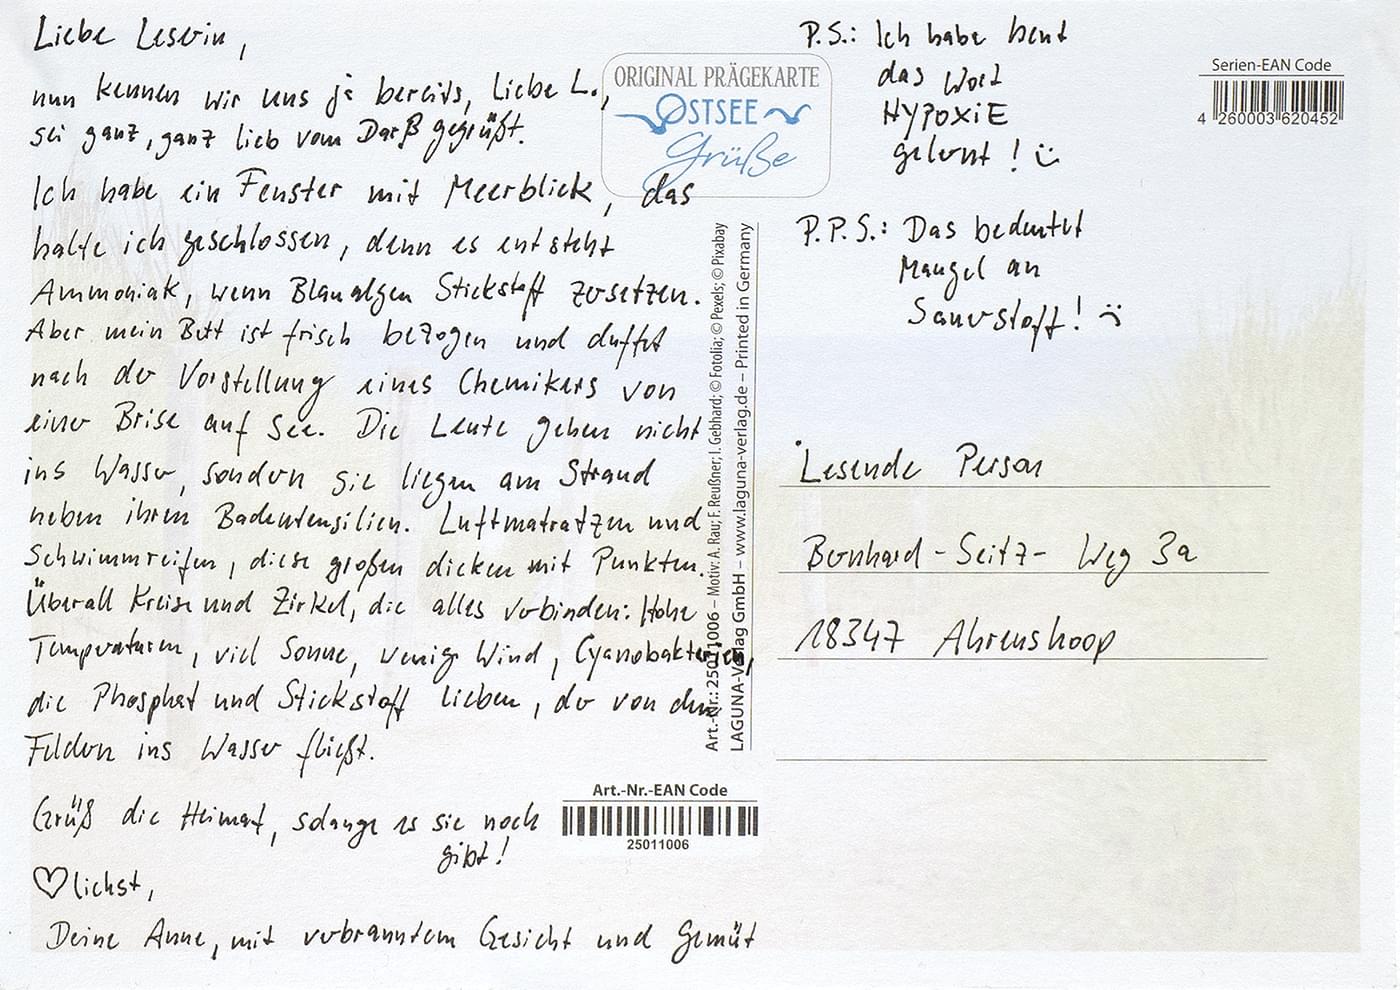 Liebe Leserin,
nun kennen wir uns ja bereits, Liebe L.,
sei ganz, ganz lieb vom Darß gegrüßt.
Ich habe ein Fenster mit Meerblick, das
halte ich geschlossen, denn es entsteht
Ammoniak, wenn Blaualgen Stickstoff zersetzen.
Aber mein Bett ist frisch bezogen und duftet
nach der Vorstellung eines Chemikers von
einer Brise auf See. Die Leute gehen nicht
ins Wasser, sondern sie liegen am Strand
neben ihren Badeutensilien. Luftmatratzen und
Schwimmreifen, diese großen dicken mit Punkten.
Überall Kreise und Zirkel, die alles verbinden: Hohe
Temperaturen, viel Sonne, wenig Wind, Cyanobakterien,
die Phosphat und Stickstoff lieben, der von den
Feldern ins Wasser fließt.
Grüß die Heimat, solange es sie noch
gibt!
♡lichst,
Deine Anne, mit verbranntem Gesicht und Gemüt
ORIGINAL PRÄGEKARTE
OSTSEE
Grüße
Art.-Nr.: 25011006 – Motiv: A. Rau; F. Reußner; I. Gebhard; © Fotolia; © Pexels; © Pixabay
LAGUNA-Verlag GmbH – www.laguna-verlag.de – Printed in Germany
Art.-Nr.-EAN Code
25011006
P.S.: Ich habe heut
das Wort
HYPOXiE
gelernt! :)
P.P.S.: Das bedeutet
Mangel an
Sauerstoff! :(
Serien-EAN Code
4 260003 620452
Lesende Person
Bernhard-Seitz-Weg 3a
18347 Ahrenshoop